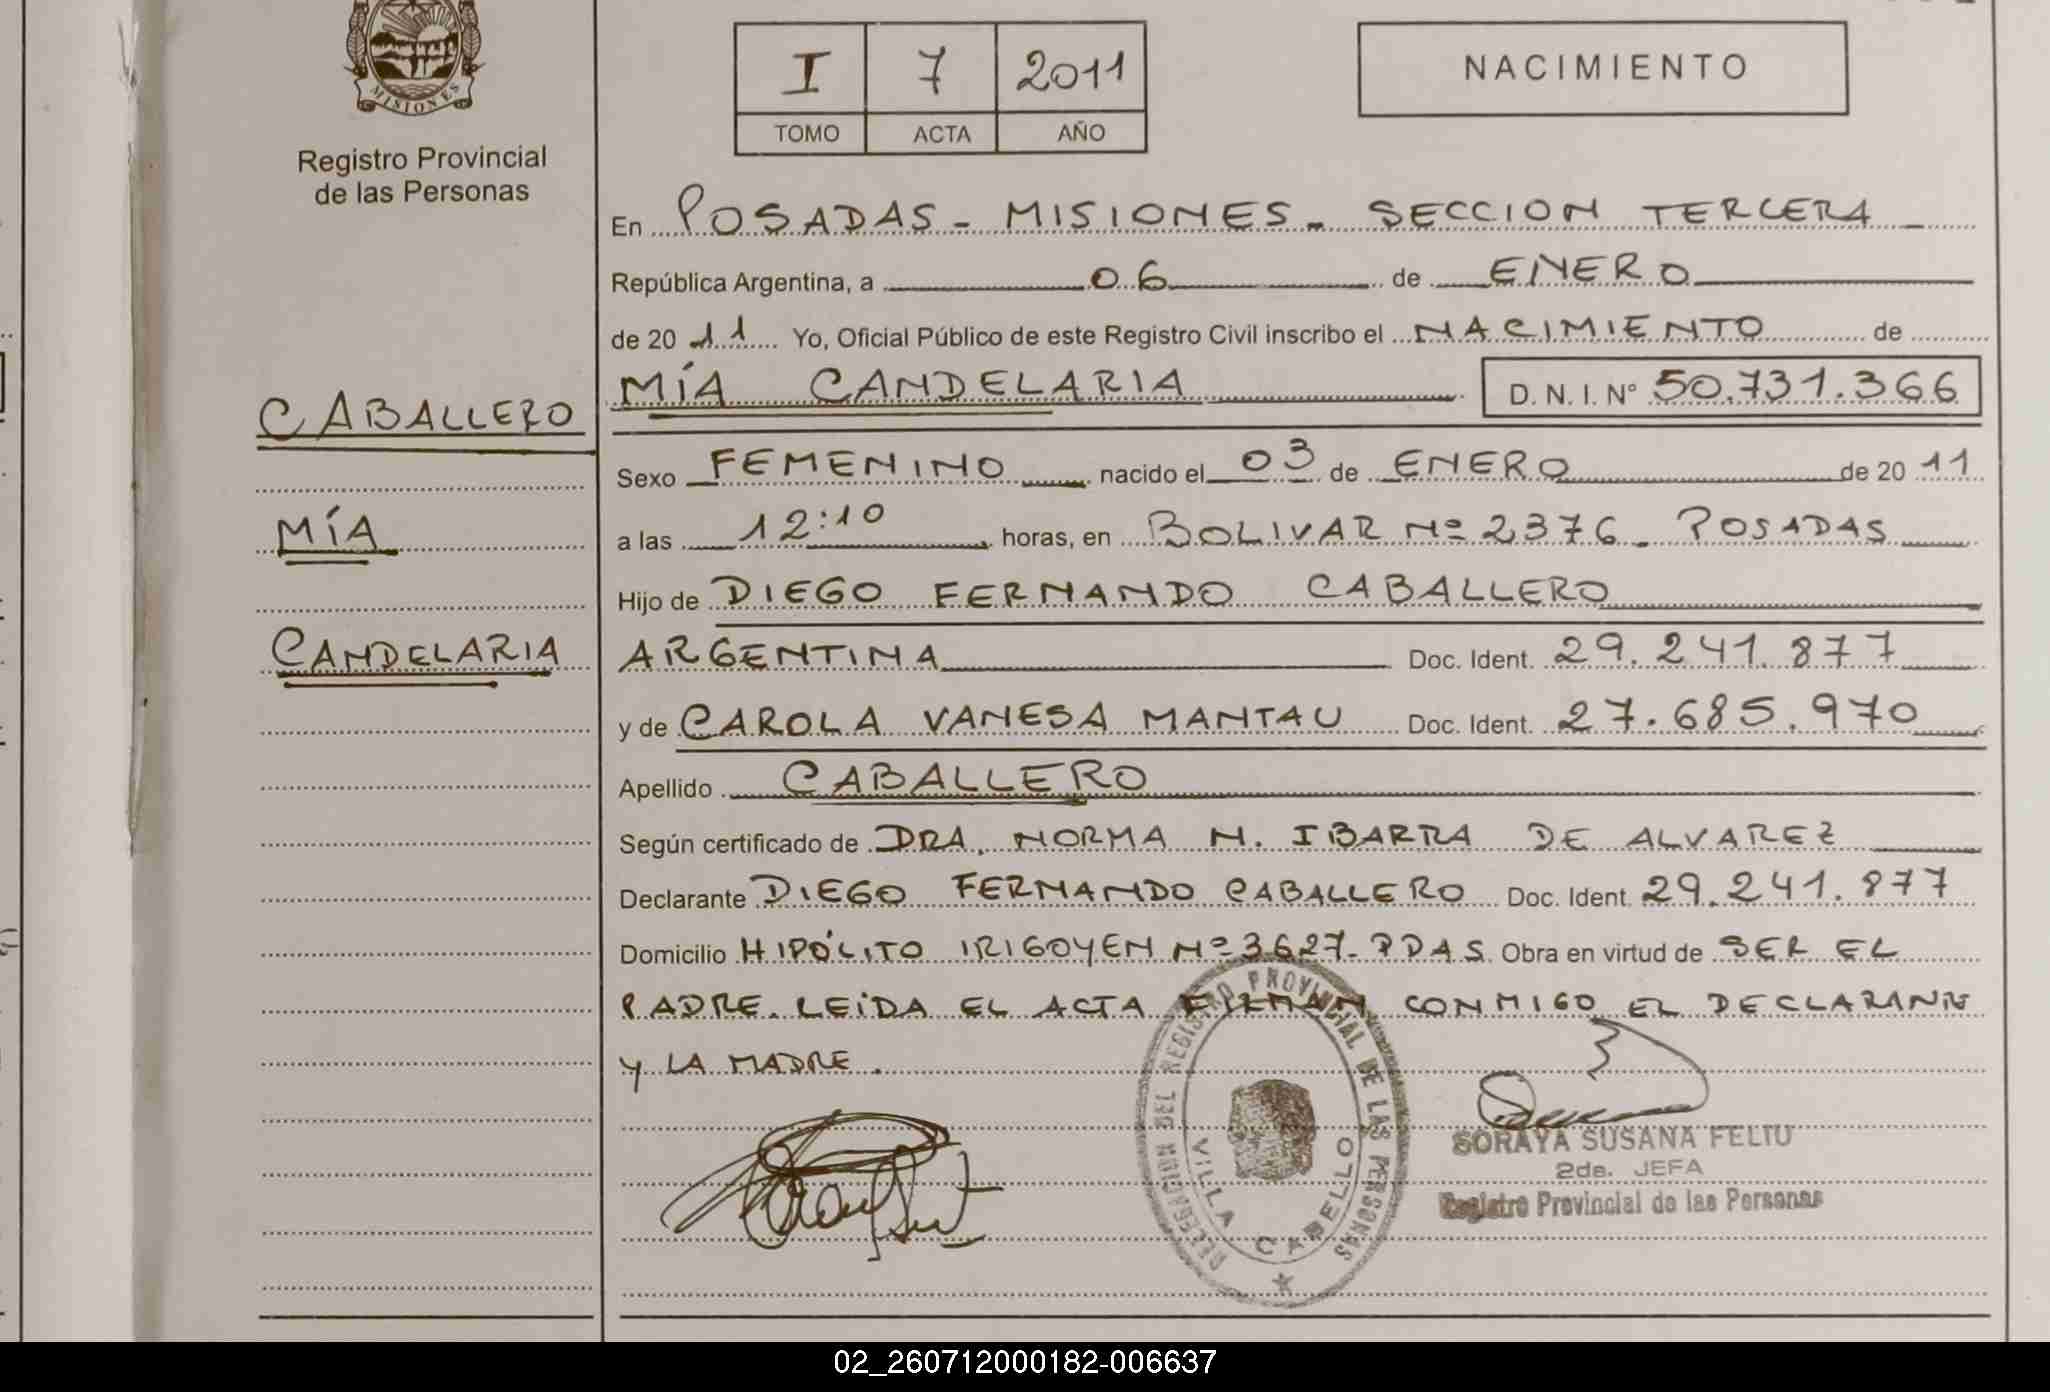 MISIONES
Registro Provincial
de las Personas
I 7 2011
TOMO ACTA AÑO
NACIMIENTO
En POSADAS - MISIONES - SECCION TERCERA
República Argentina, a 06 de ENERO
de 20 11 Yo, Oficial Público de este Registro Civil inscribo el NACIMIENTO de
MÍA CANDELARIA D. N. I. Nº 50.731.366
CABALLERO
MÍA
CANDELARIA
Sexo FEMENINO nacido el 03 de ENERO de 20 11
a las 12:10 horas, en BOLIVAR Nº 2376 - POSADAS
Hijo de DIEGO FERNANDO CABALLERO
ARGENTINA Doc. Ident. 29.241.877
y de CAROLA VANESA MANTAU Doc. Ident. 27.685.970
Apellido CABALLERO
Según certificado de DRA. NORMA N. IBARRA DE ALVAREZ
Declarante DIEGO FERNANDO CABALLERO Doc. Ident. 29.241.877
Domicilio HIPÓLITO IRIGOYEN Nº 3627- PDAS Obra en virtud de SER EL
PADRE. LEIDA EL ACTA FIRMAN CONMIGO EL DECLARANTE
Y LA MADRE.
DELEGACION DEL REGISTRO PROVINCIAL DE LAS PERSONAS
VILLA CABELLO
SORAYA SUSANA FELIU
2da. JEFA
Registro Provincial de las Personas
02_260712000182-006637